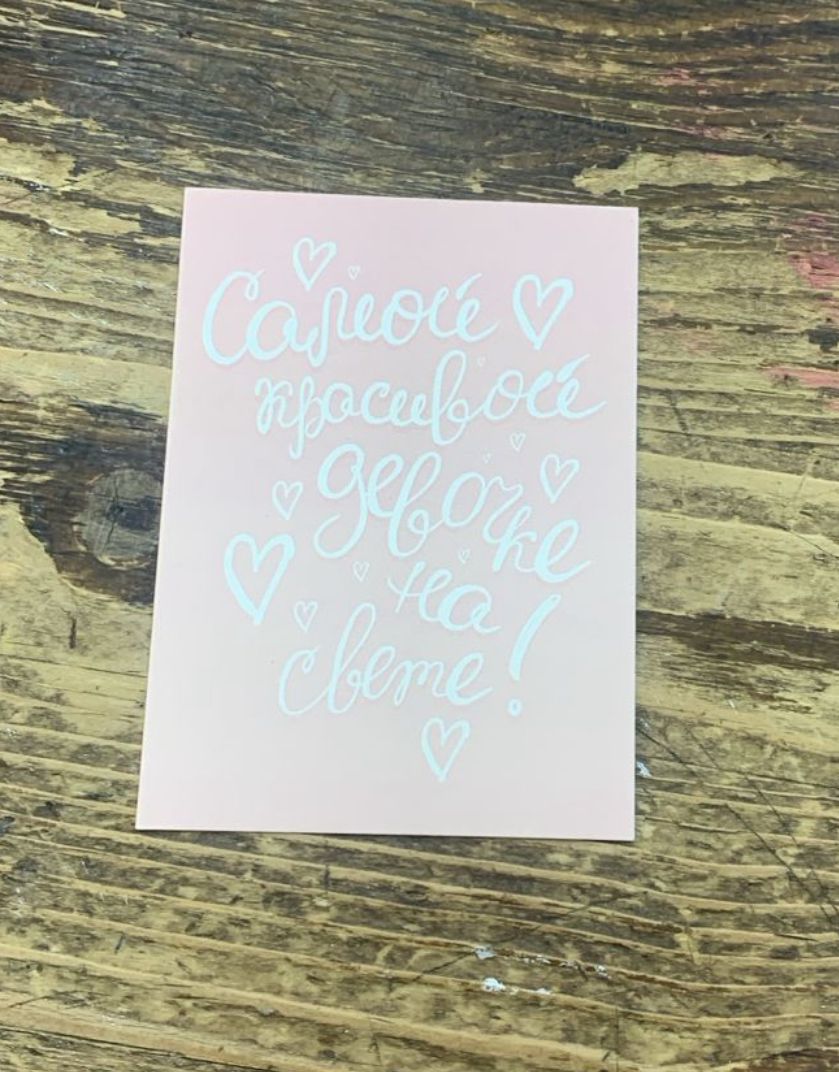 Самой
красивой
девочке
на
свете!